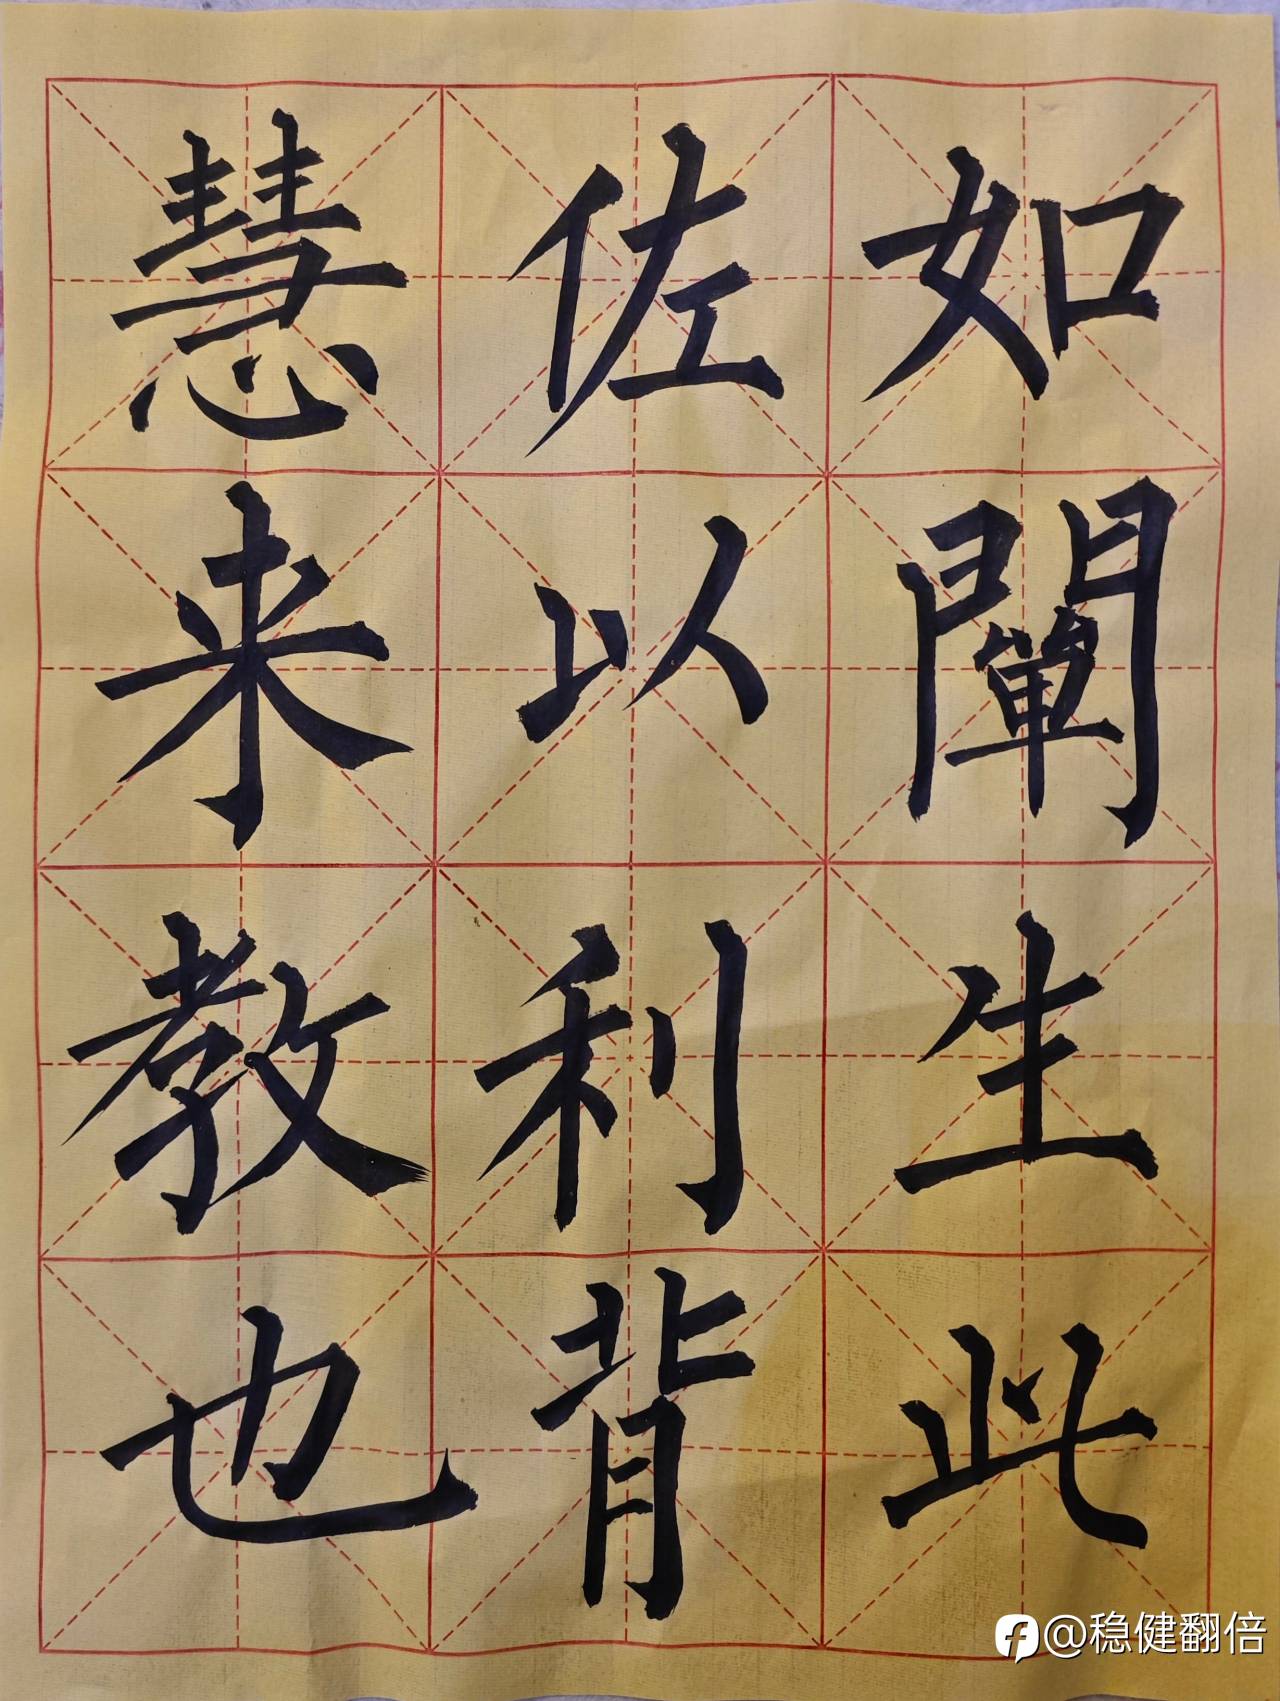 如闡生此
佐以利背
慧来教也
@稳健翻倍